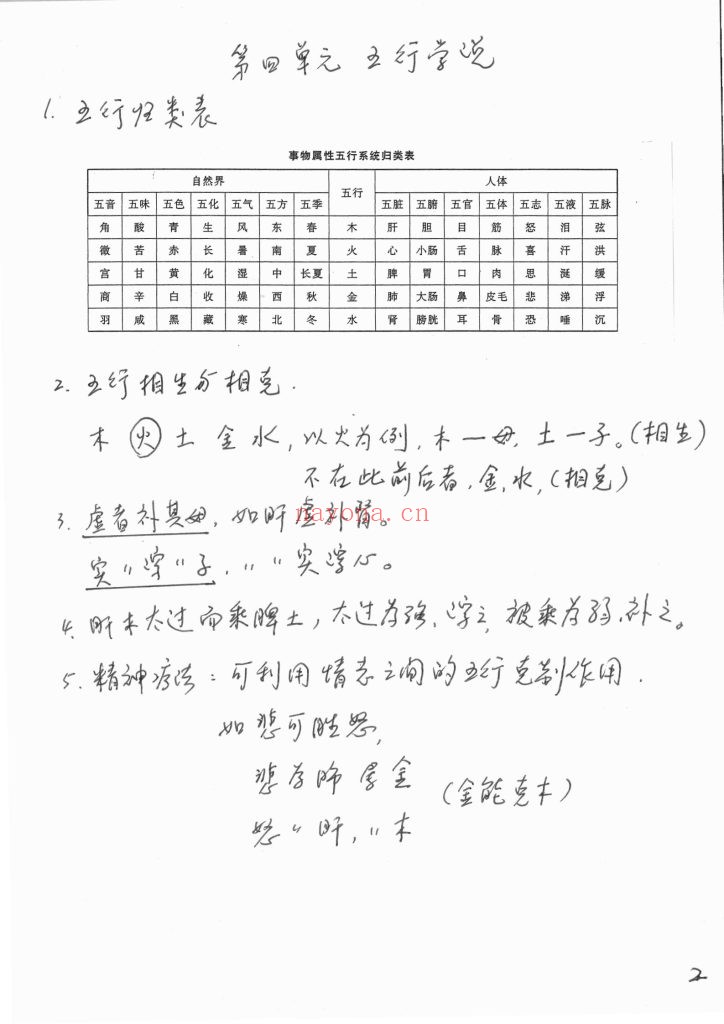 第四单元 五行学说
1. 五行归类表
事物属性五行系统归类表
自然界 五行 人体
五音 五味 五色 五化 五气 五方 五季 五脏 五腑 五官 五体 五志 五液 五脉
角 酸 青 生 风 东 春 木 肝 胆 目 筋 怒 泪 弦
徵 苦 赤 长 暑 南 夏 火 心 小肠 舌 脉 喜 汗 洪
宫 甘 黄 化 湿 中 长夏 土 脾 胃 口 肉 思 涎 缓
商 辛 白 收 燥 西 秋 金 肺 大肠 鼻 皮毛 悲 涕 浮
羽 咸 黑 藏 寒 北 冬 水 肾 膀胱 耳 骨 恐 唾 沉
2. 五行相生与相克.
木 火 土 金 水, 以火为例, 木一母, 土一子。(相生)
不在此前后者, 金, 水, (相克)
3. 虚者补其母, 如肝虚补肾。
nayona.cn
实〃泻〃子, 〃〃实泻心。
4. 肝木太过而乘脾土, 太过为强, 泻之, 被乘为弱, 补之。
5. 精神疗法: 可利用情志之间的五行克制作用.
如悲可胜怒,
悲为肺属金
(金能克木)
怒〃肝, 〃木
2